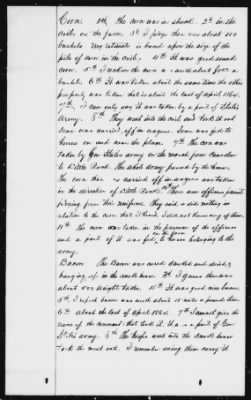 Corn. 1st, The corn was in shuck. 2d in the
cribs on the farm. 3d I judge there was about 500
bushels. My estimate is based upon the size of the
pile of corn in the crib. 4th It was good sound
corn. 5th I reckon the corn was worth about $ a
bushel. 6th It was taken about the same time the other
property was taken that is about the last of April 1864.
7th. I can only say it was taken by a part of Steele's
Army. 8th They went into the crib and took it out
Some was carried off in wagons. Some was fed to
horses on and near the place. 9th The corn was
taken by Gen Steele's army on the march from Camden
to Little Rock. The whole army passed by the house.
The corn that was carried off in wagons was taken
in the direction of Little Rock. 10th There were officers present
judging from their uniforms. They said or did nothing in
relation to the corn that I heard. I did not know any of them.
11th The corn was taken in the presence of the officers
and a part of it was fed on the farm to horses belonging to the
army.
Bacon The Bacon was cured salted and dried,
hanging up in the smoke house. 3d, I guess there was
about 500 weight taken. 4th It was good new bacon.
5th, I expect bacon was worth about 10 cents a pound then.
6th about the last of April 1864. 7th I cannot give the
name of the command that took it. It was a part of Gen
Steele's army. 8th The troops went into the smoke house
took the meat out. I remember seeing them carry it